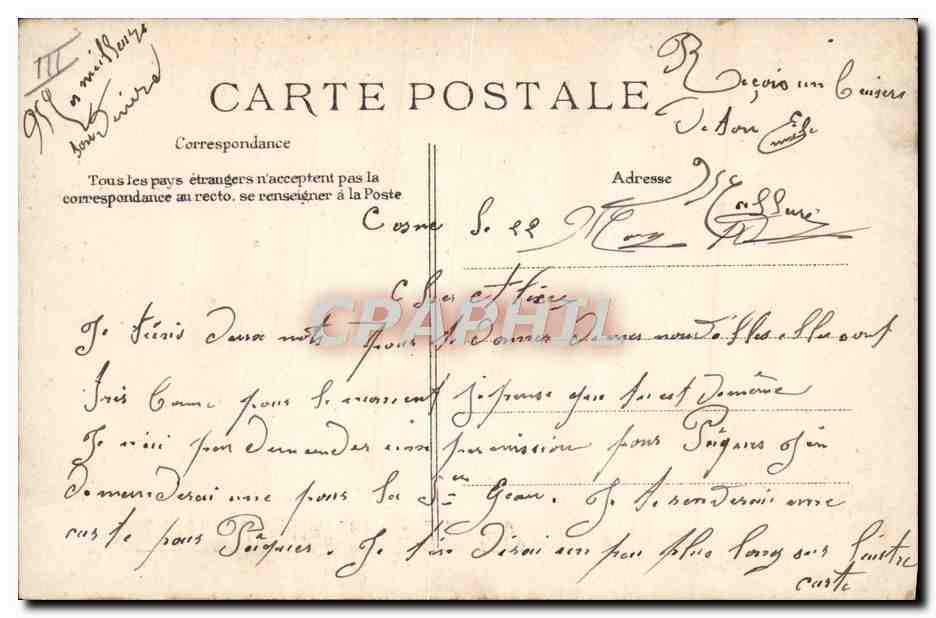 III
CARTE POSTALE
Reçois un baisers
De ton
Correspondance
Tous les pays étrangers n'acceptent pas la
correspondance au recto. se renseigner à la Poste
Adresse
Cosne le 22
CPAPHIL
Je deux mots pour te donner de mes elle sont
très bonne pour le moment je pense que toi est de même
Je n'ai pas demander une permission pour Pâques j'en
demanderai une pour la Gean. Je te renderai une
carte pour Pâques. Je t'en dirai un peu plus long sur l'autre
carte